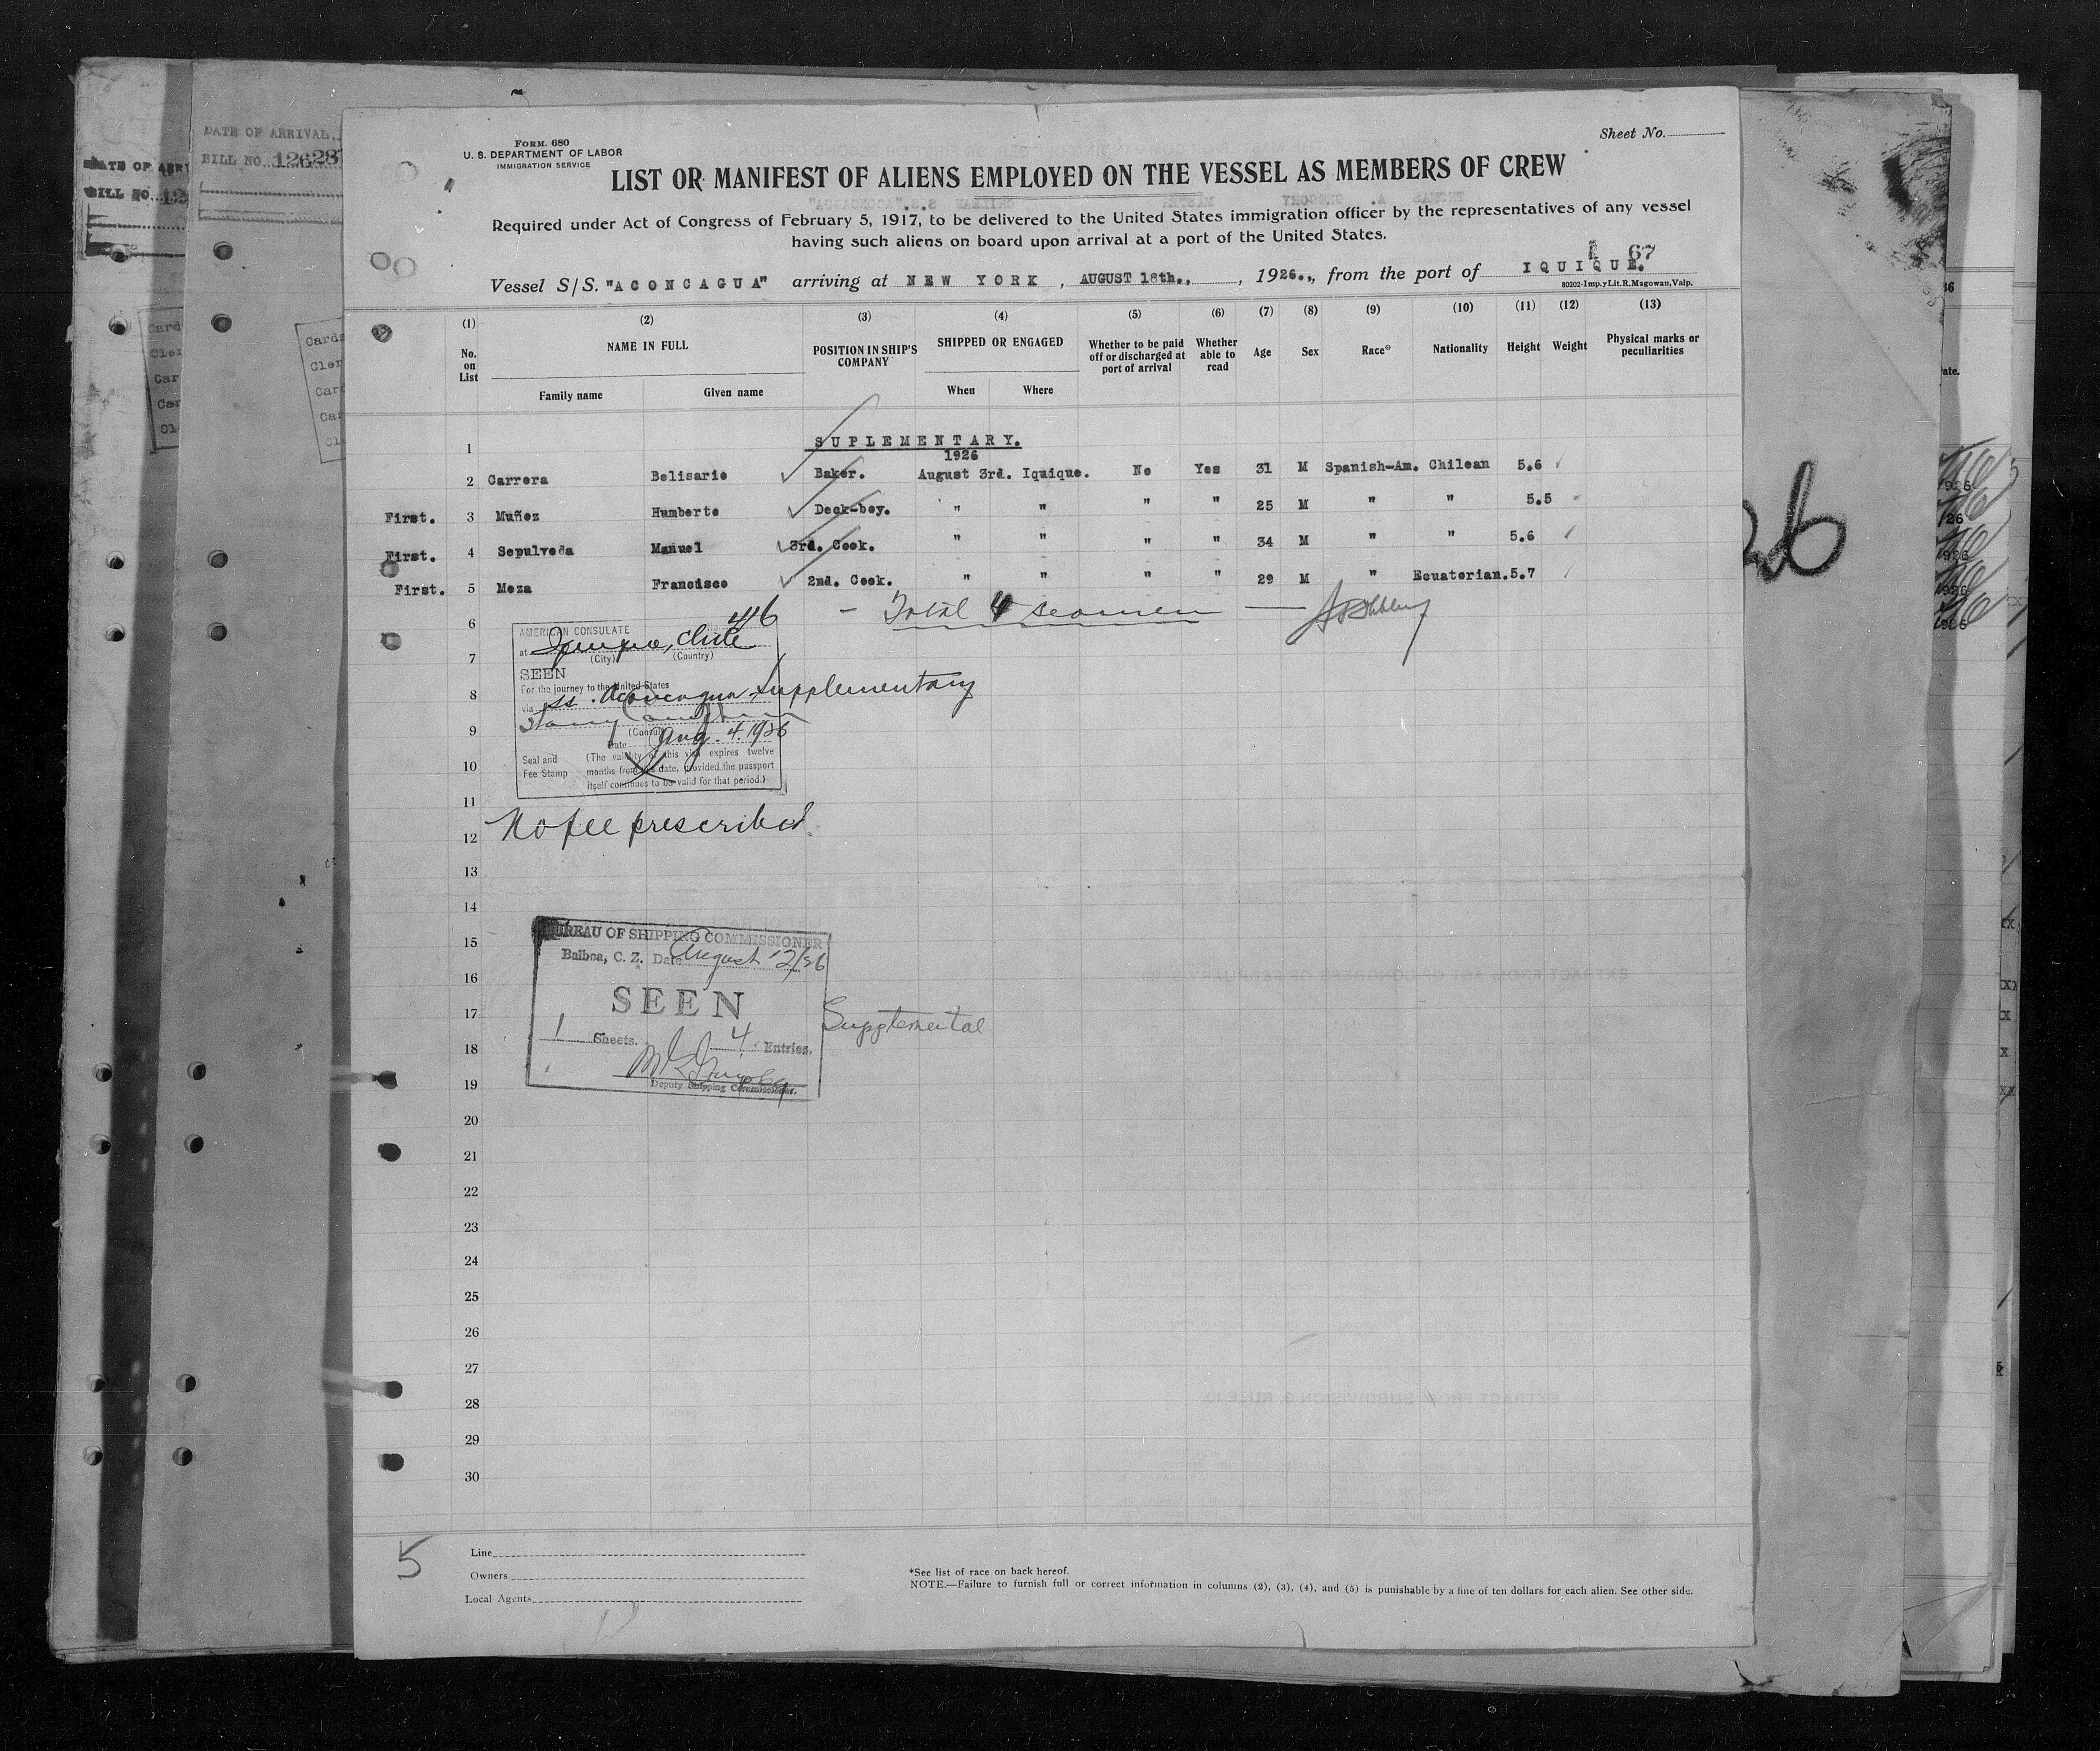 DATE OF ARRIVAL
BILL NO. 12628
BILL NO. 12
Sheet No.
FORM. 680
U. S. DEPARTMENT OF LABOR
IMMIGRATION SERVICE
LIST OR MANIFEST OF ALIENS EMPLOYED ON THE VESSEL AS MEMBERS OF CREW
Required under Act of Congress of February 5, 1917, to be delivered to the United States immigration officer by the representatives of any vessel
having such aliens on board upon arrival at a port of the United States.
67
Vessel S/S. "ACONCAGUA" arriving at NEW YORK, AUGUST 18th., 1926., from the port of IQUIQUE.
80202-Imp.y Lit.R.Magowan,Valp.
(1) (2) (3) (4) (5) (6) (7) (8) (9) (10) (11) (12) (13)
No. on List NAME IN FULL POSITION IN SHIP'S COMPANY SHIPPED OR ENGAGED Whether to be paid off or discharged at port of arrival Whether able to read Age Sex Race* Nationality Height Weight Physical marks or peculiarities
Family name Given name When Where
1 SUPLEMENTARY.
1926
2 Carrera Belisario Baker. August 3rd. Iquique. No Yes 31 M Spanish-Am. Chilean 5.6
First. 3 Muñoz Humberto Deck-boy. " " " " 25 M " " 5.5
First. 4 Sepulveda Manuel 3rd. Cook. " " " " 34 M " " 5.6
First. 5 Meza Francisco 2nd. Cook. " " " " 29 M " Ecuatorian. 5.7
6 - Total 4 seamen -
416
AMERICAN CONSULATE
at Iquique, Chile
7 (City) (Country)
SEEN
For the journey to the United States
8 via ss. Aconcagua Supplementary
9 (Consul)
Date Aug. 4. 1926
Seal and Fee Stamp (The validity of this visa expires twelve
10 months from this date, provided the passport
itself continues to be valid for that period.)
11
12 No fee prescribed.
13
14
15 BUREAU OF SHIPPING COMMISSIONER
Balboa, C. Z. Date August 12/26
16
SEEN
17 Supplemental
18 1 Sheets. 4 Entries.
19 Deputy Shipping Commissioner.
20
21
22
23
24
25
26
27
28
29
30
5
Line
Owners
Local Agents
*See list of race on back hereof.
NOTE.—Failure to furnish full or correct information in columns (2), (3), (4), and (5) is punishable by a fine of ten dollars for each alien. See other side.
26